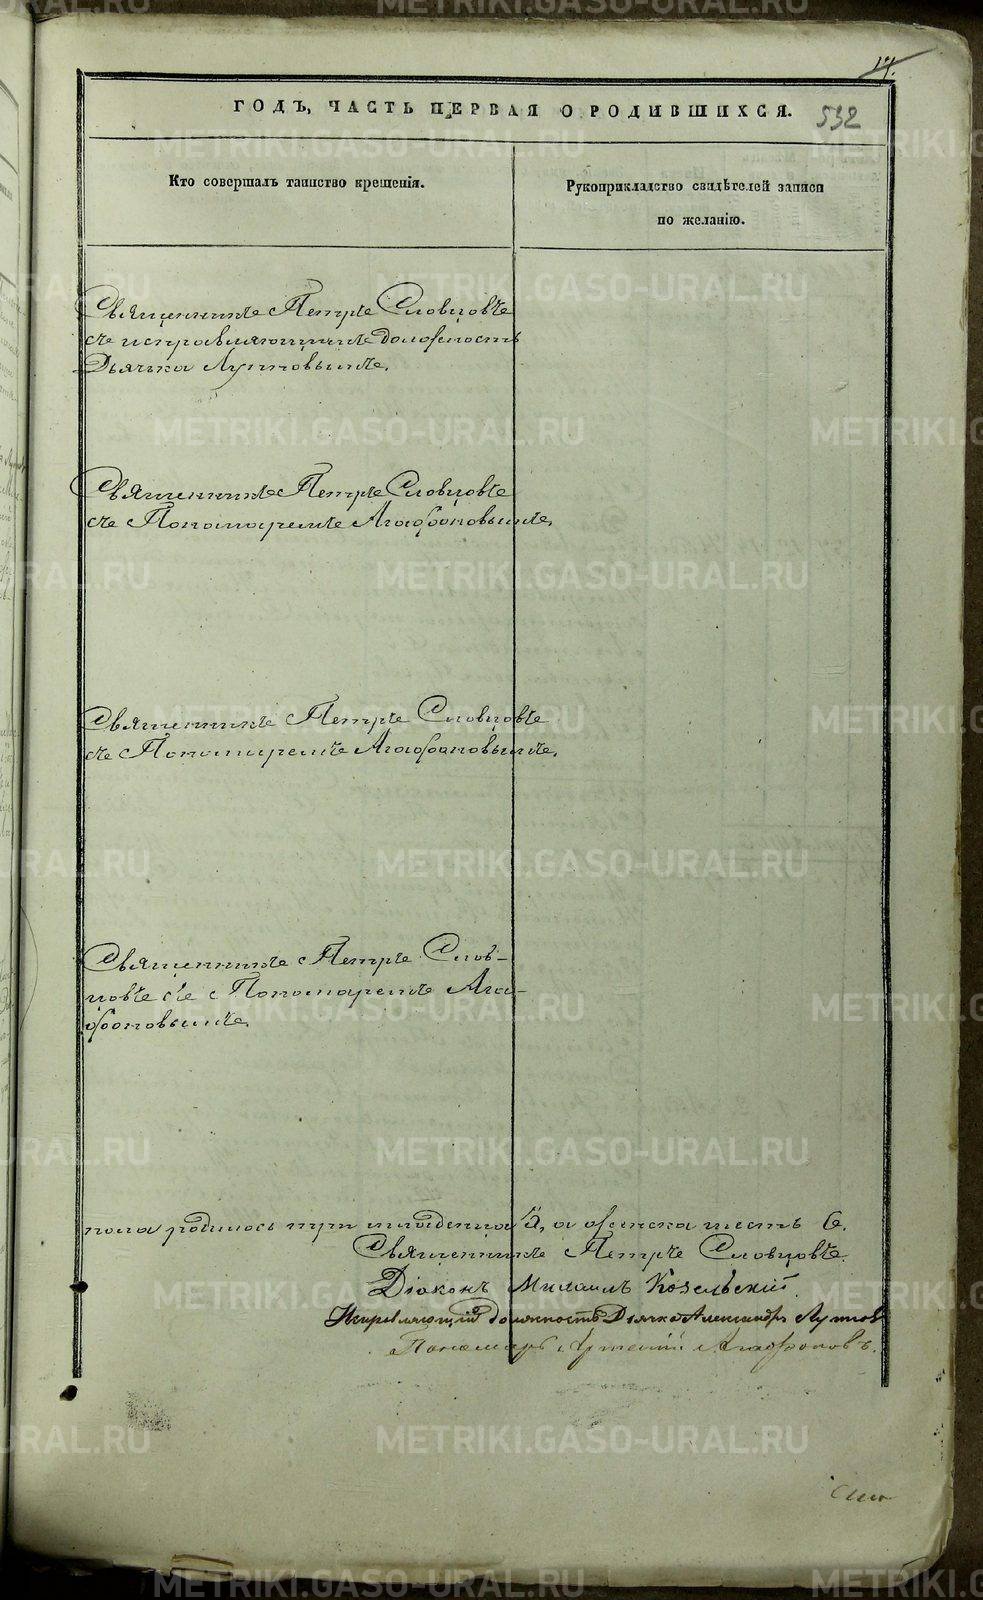 17.
ГОДЪ, ЧАСТЬ ПЕРВАЯ О РОДИВШИХСЯ.
532
Кто совершалъ таинство крещенія.
Рукоприкладство свидѣтелей записи
по желанію.
Священникъ Петръ Словцовъ
съ исправляющимъ должность
Дьячка Лутковымъ.
Священникъ Петръ Словцовъ
съ Пономаремъ Агафоновымъ.
Священникъ Петръ Словцовъ
съ Пономаремъ Агафоновымъ.
Священникъ Петръ Слов-
цовъ съ Пономаремъ Ага-
фоновымъ.
пола родилось три младенца 3, а женска шесть 6.
Священникъ Петръ Словцовъ.
Діаконъ Михаилъ Козельскій.
Исправляющій должность Дьячка Александръ Лутков
Пономарь Артемій Агафоновъ.
METRIKI.GASO-URAL.RU